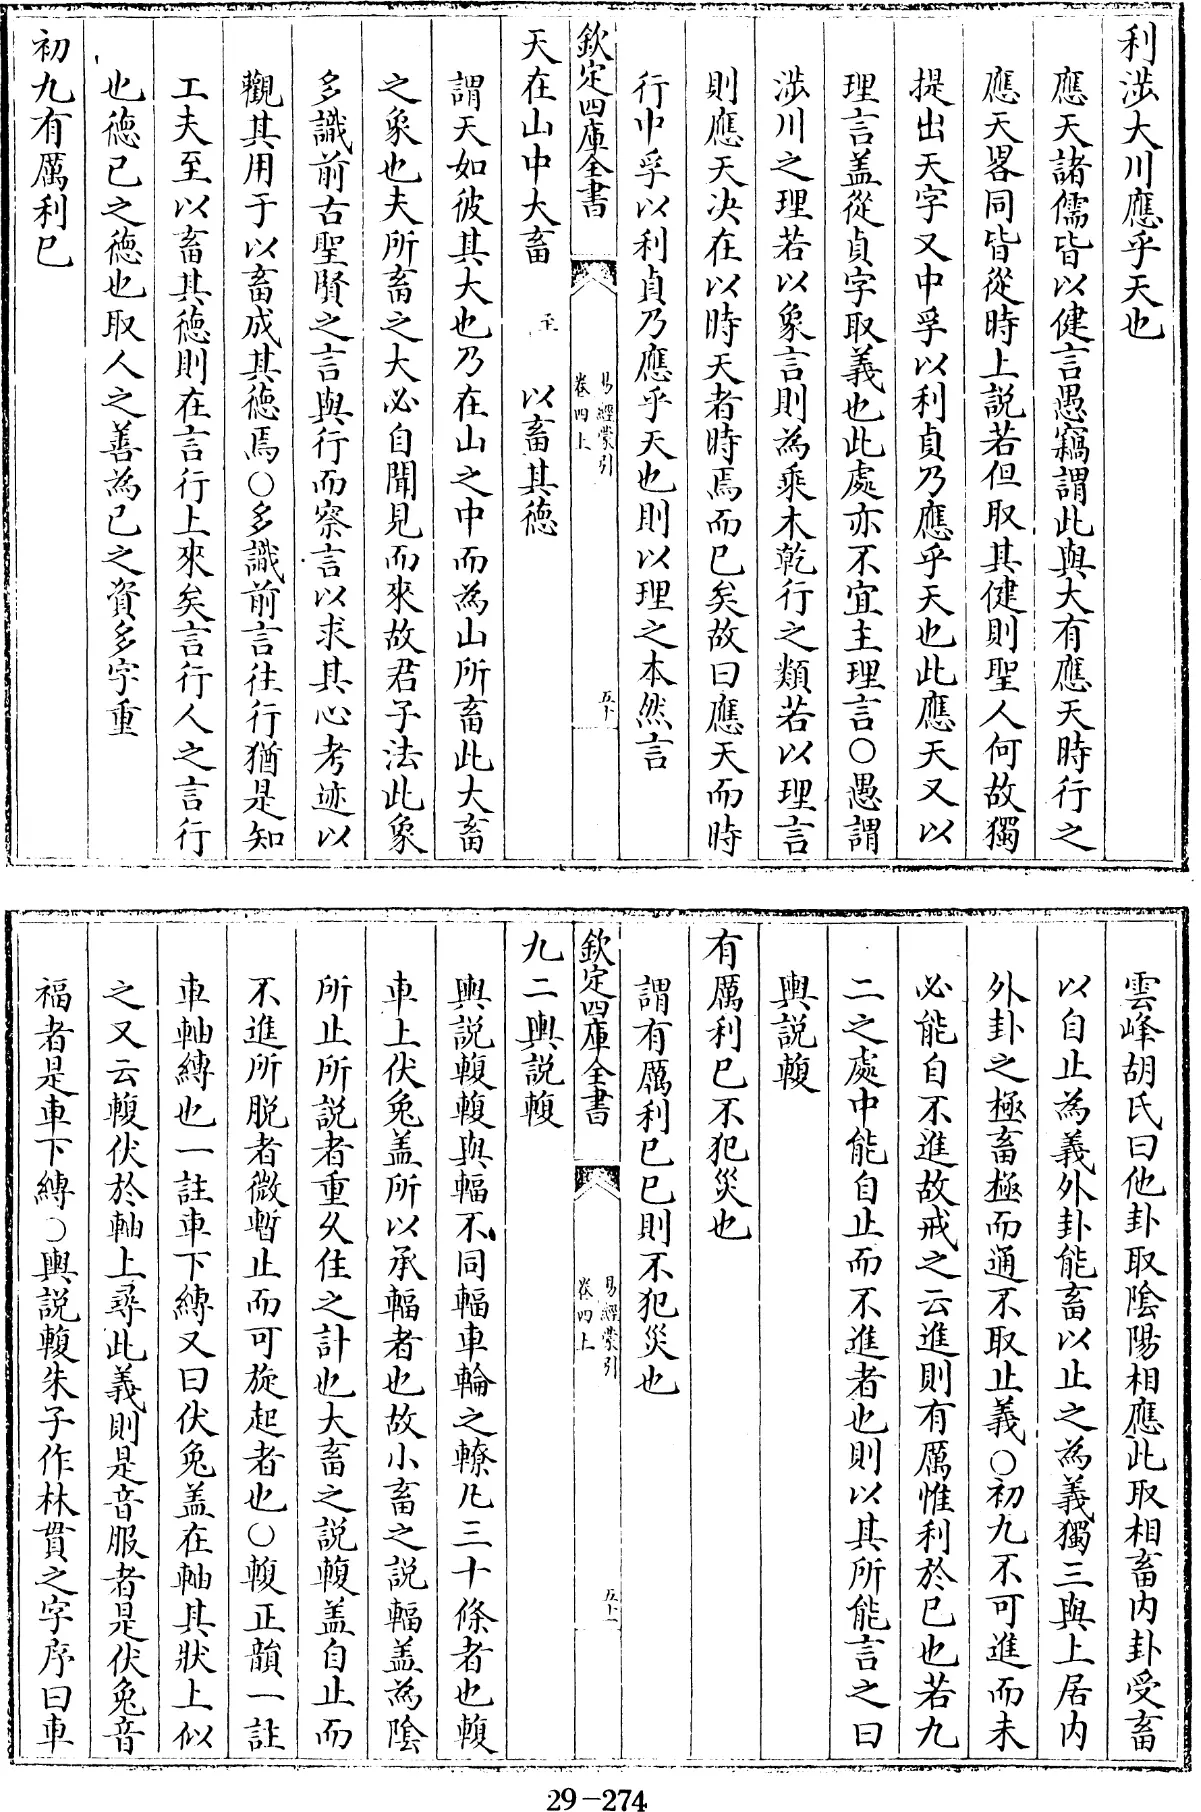 利涉大川應乎天也
應天諸儒皆以健言愚竊謂此與大有應天時行之
應天畧同皆從時上説若但取其健則聖人何故獨
提出天字又中孚以利貞乃應乎天也此應天又以
理言盖從貞字取義也此處亦不宜主理言○愚謂
涉川之理若以象言則為乘木乾行之類若以理言
則應天决在以時天者時焉而已矣故曰應天而時
行中孚以利貞乃應乎天也則以理之本然言
欽定四庫全書
易經蒙引
卷四上
五十
天在山中大畜 至 以畜其徳
謂天如彼其大也乃在山之中而為山所畜此大畜
之象也夫所畜之大必自聞見而來故君子法此象
多識前古聖賢之言與行而察言以求其心考迹以
觀其用于以畜成其徳焉○多識前言往行猶是知
工夫至以畜其徳則在言行上來矣言行人之言行
也徳已之徳也取人之善為已之資多字重
初九有厲利已
雲峰胡氏曰他卦取陰陽相應此取相畜内卦受畜
以自止為義外卦能畜以止之為義獨三與上居内
外卦之極畜極而通不取止義○初九不可進而未
必能自不進故戒之云進則有厲惟利於已也若九
二之處中能自止而不進者也則以其所能言之曰
輿説輹
有厲利已不犯災也
謂有厲利已已則不犯災也
欽定四庫全書
易經蒙引
卷四上
五十一
九二輿説輹
輿説輹輹與輻不同輻車輪之轑凡三十條者也輹
車上伏兔盖所以承輻者也故小畜之説輻盖為陰
所止所説者重久住之計也大畜之説輹盖自止而
不進所脱者微暫止而可旋起者也○輹正韻一註
車軸縛也一註車下縛又曰伏兔盖在軸其狀上似
之又云輹伏於軸上尋此義則是音服者是伏兔音
福者是車下縛○輿説輹朱子作林貫之字序曰車
29-274